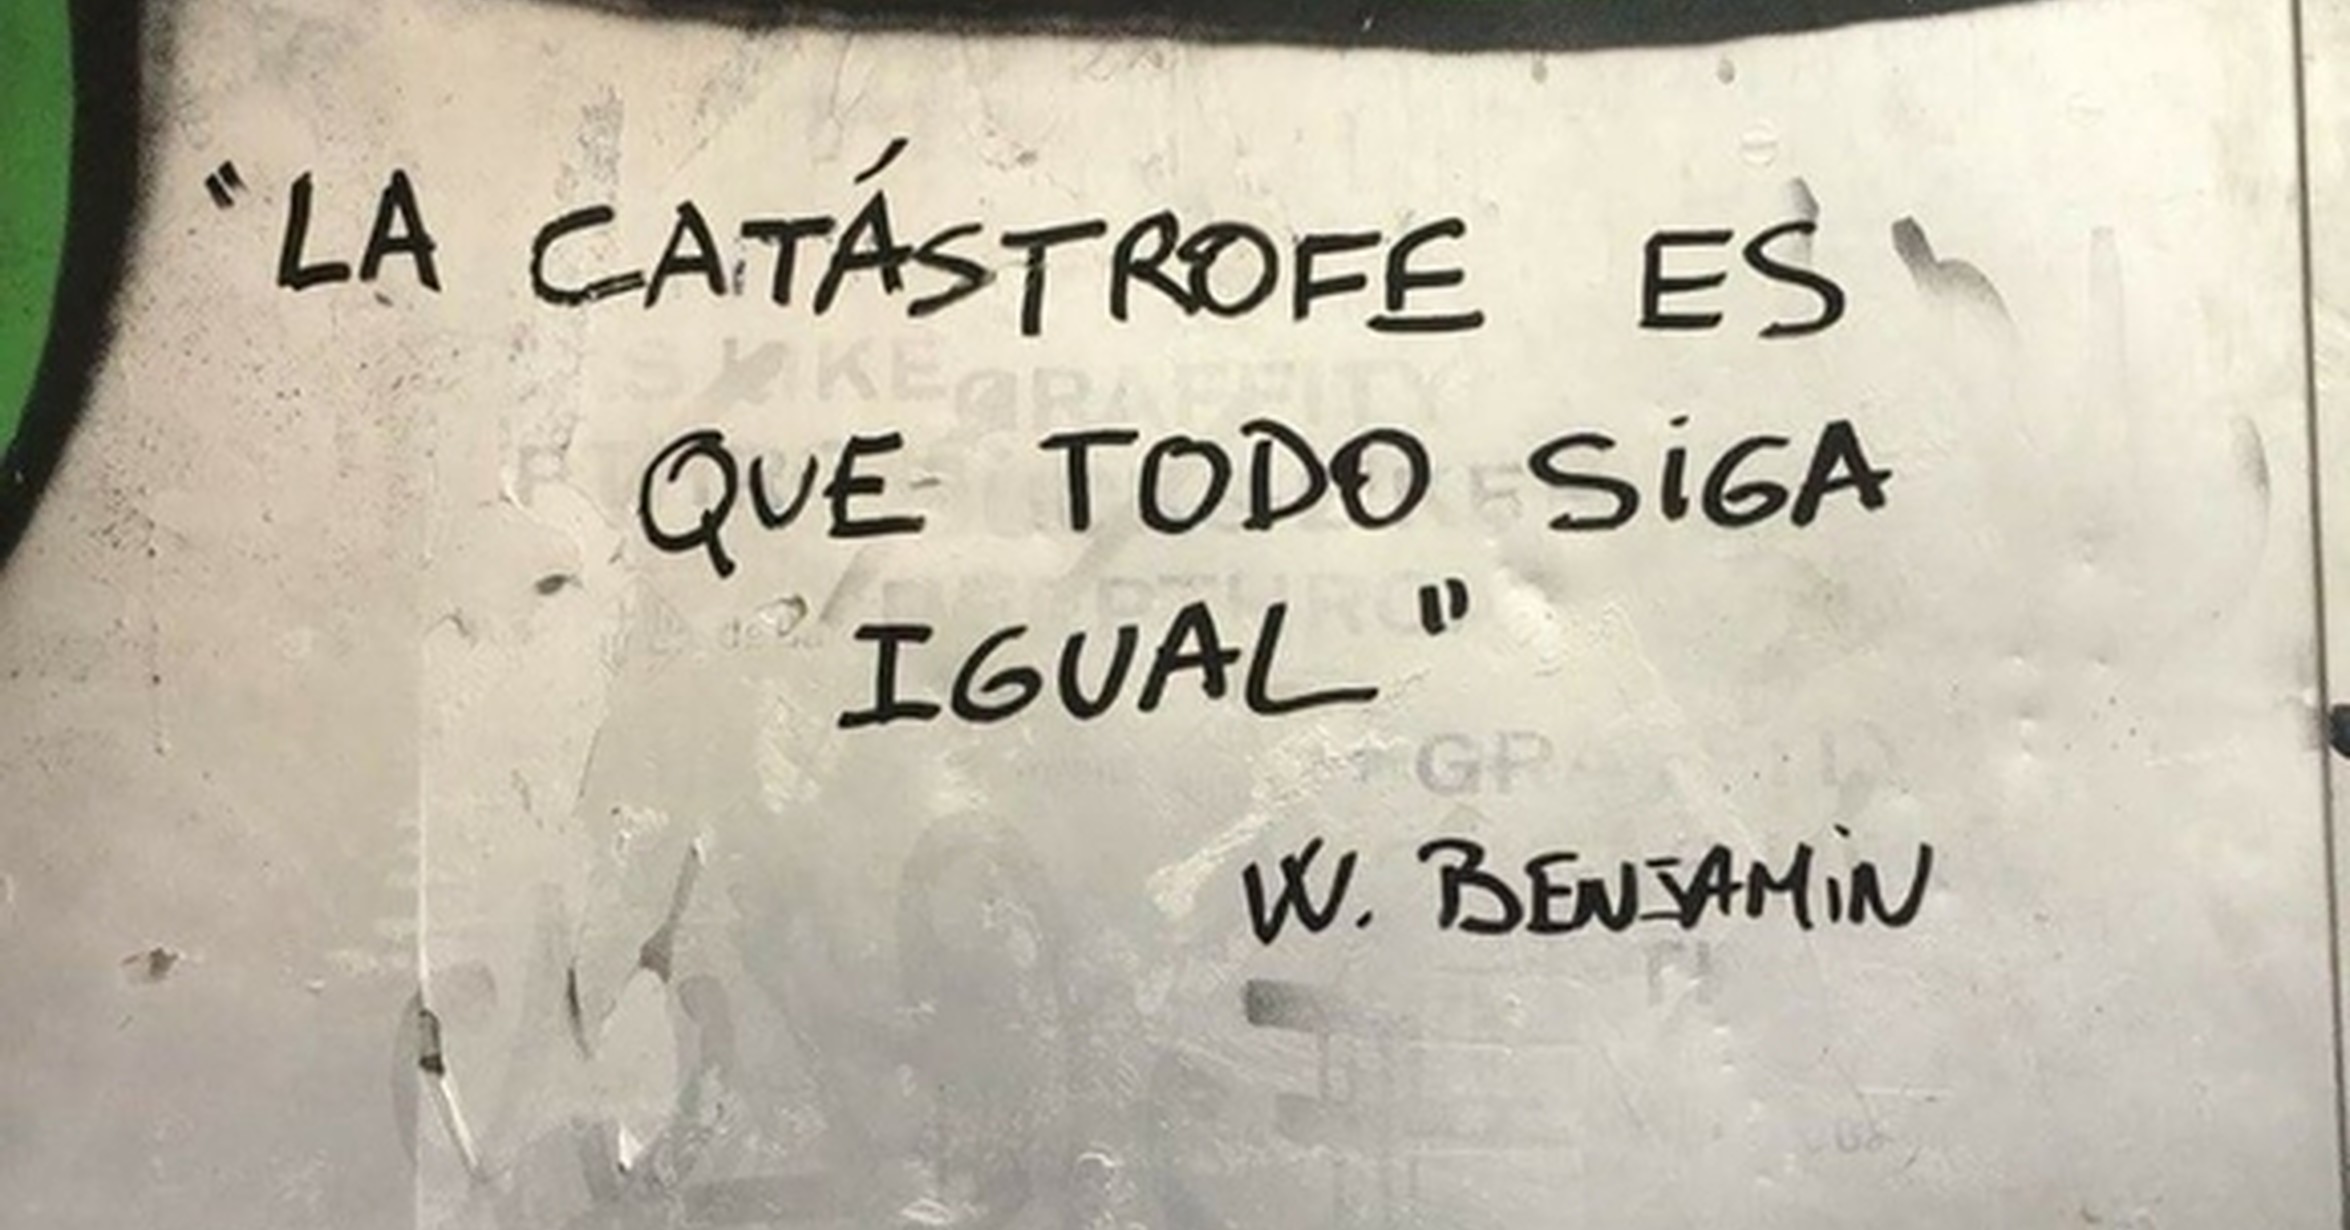 "LA CATÁSTROFE ES
QUE TODO SiGA
IGUAL"
W. BENJAMiN